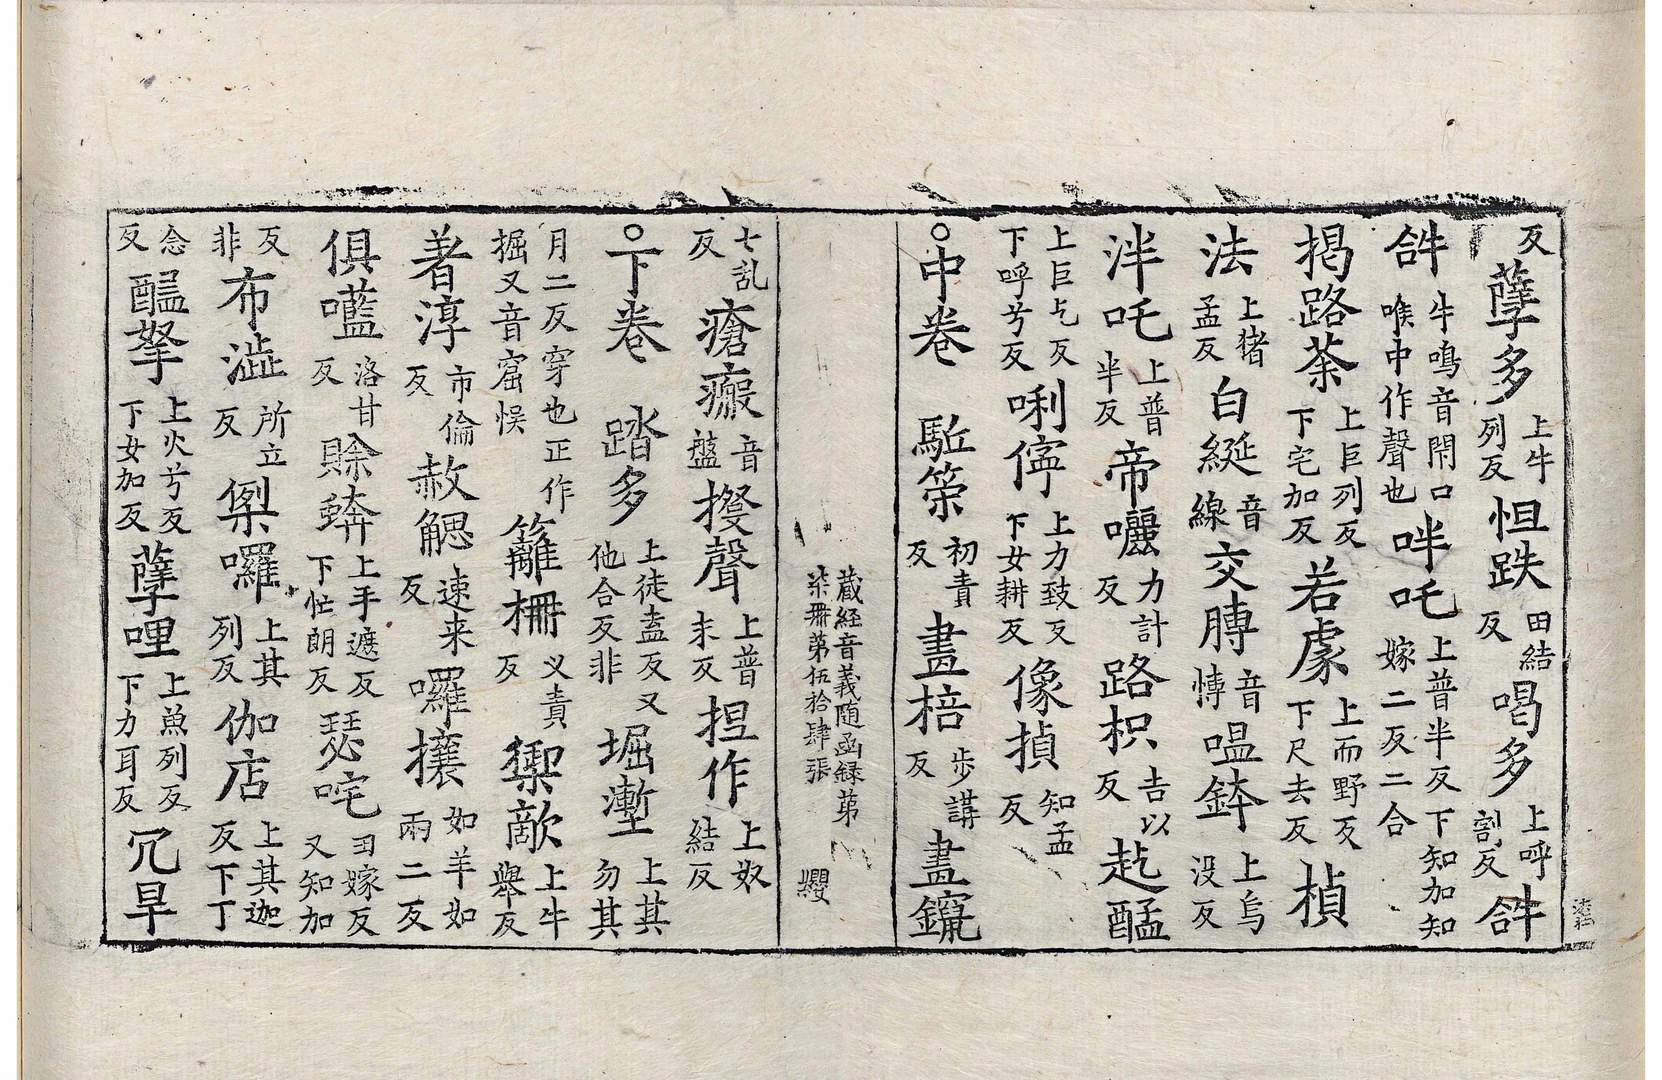 反孽多上牛列反怛跌田結反喝多上呼割反𤙖
𤙖牛鳴音閇口喉中作聲也吽吒上普半反下知加知嫁二反二合
揭路荼上巨列反下宅加反若䖍上而野反下尺去反楨
法上猪孟反白綖音線交膊音博嗢鉢上烏没反
泮吒上普半反帝囇力計反路枳吉以反赲䤌
上巨乞反下呼兮反唎儜上力致反下女耕反像揁知孟反
○中卷 䮑筞初責反畫棓步講反畫鑹
藏経音義随函録第柒冊第伍拾肆張 纓
七乱反瘡瘢音盤㨯聲上普末反捏作上奴結反
○下卷 踏多上徒盍反又他合反非堀塹上其勿其
月二反穿也正作掘又音窟悮籬柵乂責反禦敵上牛舉反
著淳市倫反赦䚡速来反囉攘如羊如兩二反
俱㘕洛甘反賒𨋽上手遮反下忙朗反瑟咤田嫁反又知加
反非布澁所立反㑮囉上其列反伽店上其迦反下丁
念反䤈拏上火兮反下女加反孽哩上魚列反下力耳反冗旱